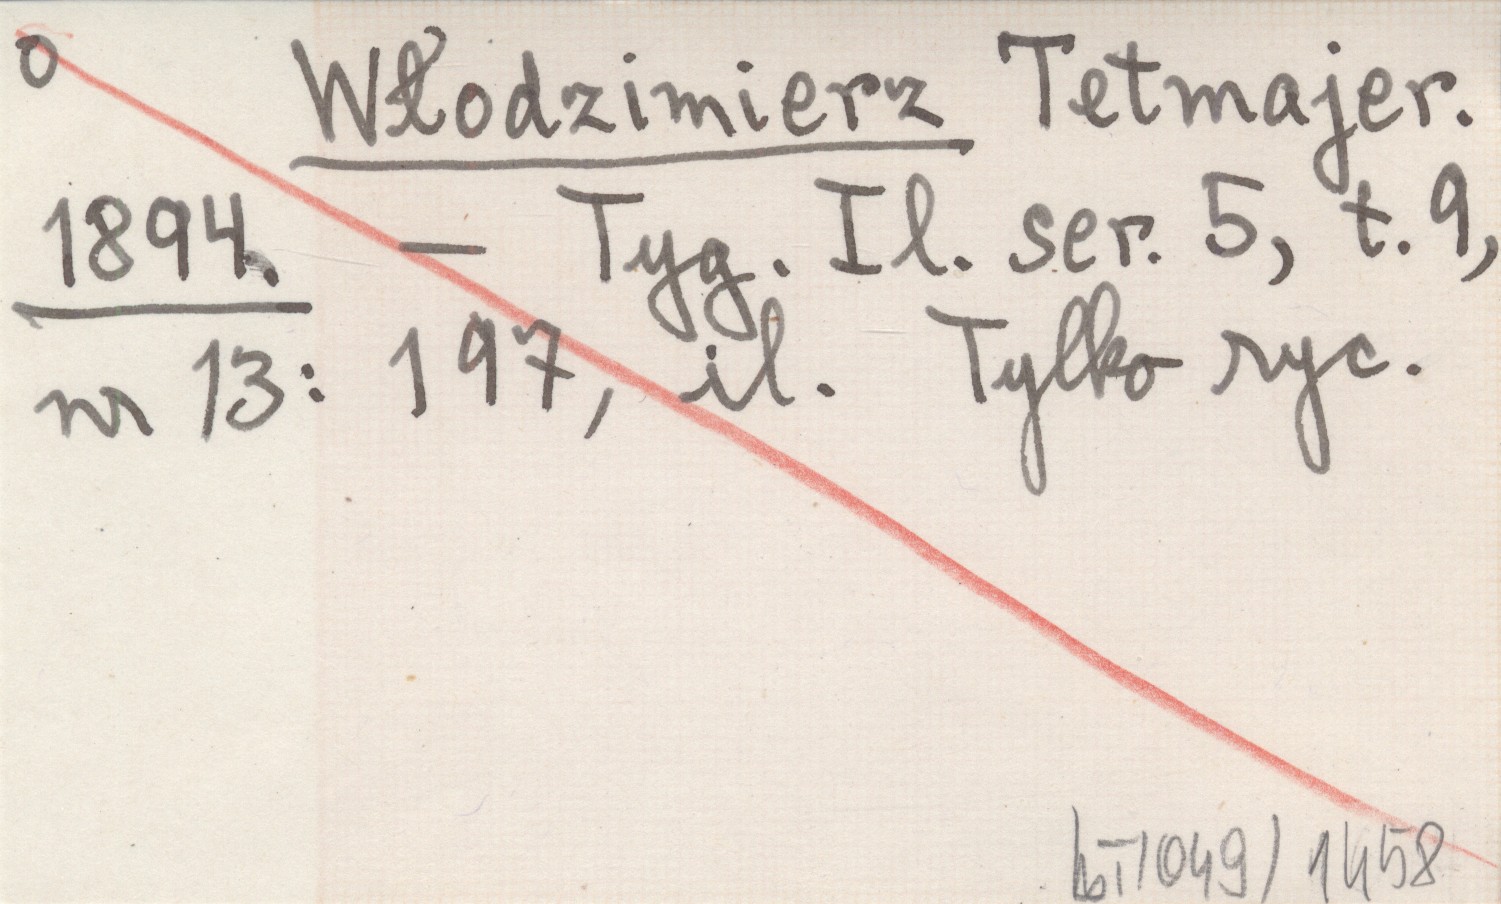 o Włodzimierz Tetmajer.
1894. — Tyg. Il. ser. 5, t. 9,
nr 13: 197, il. Tylko ryc.
1049/1458